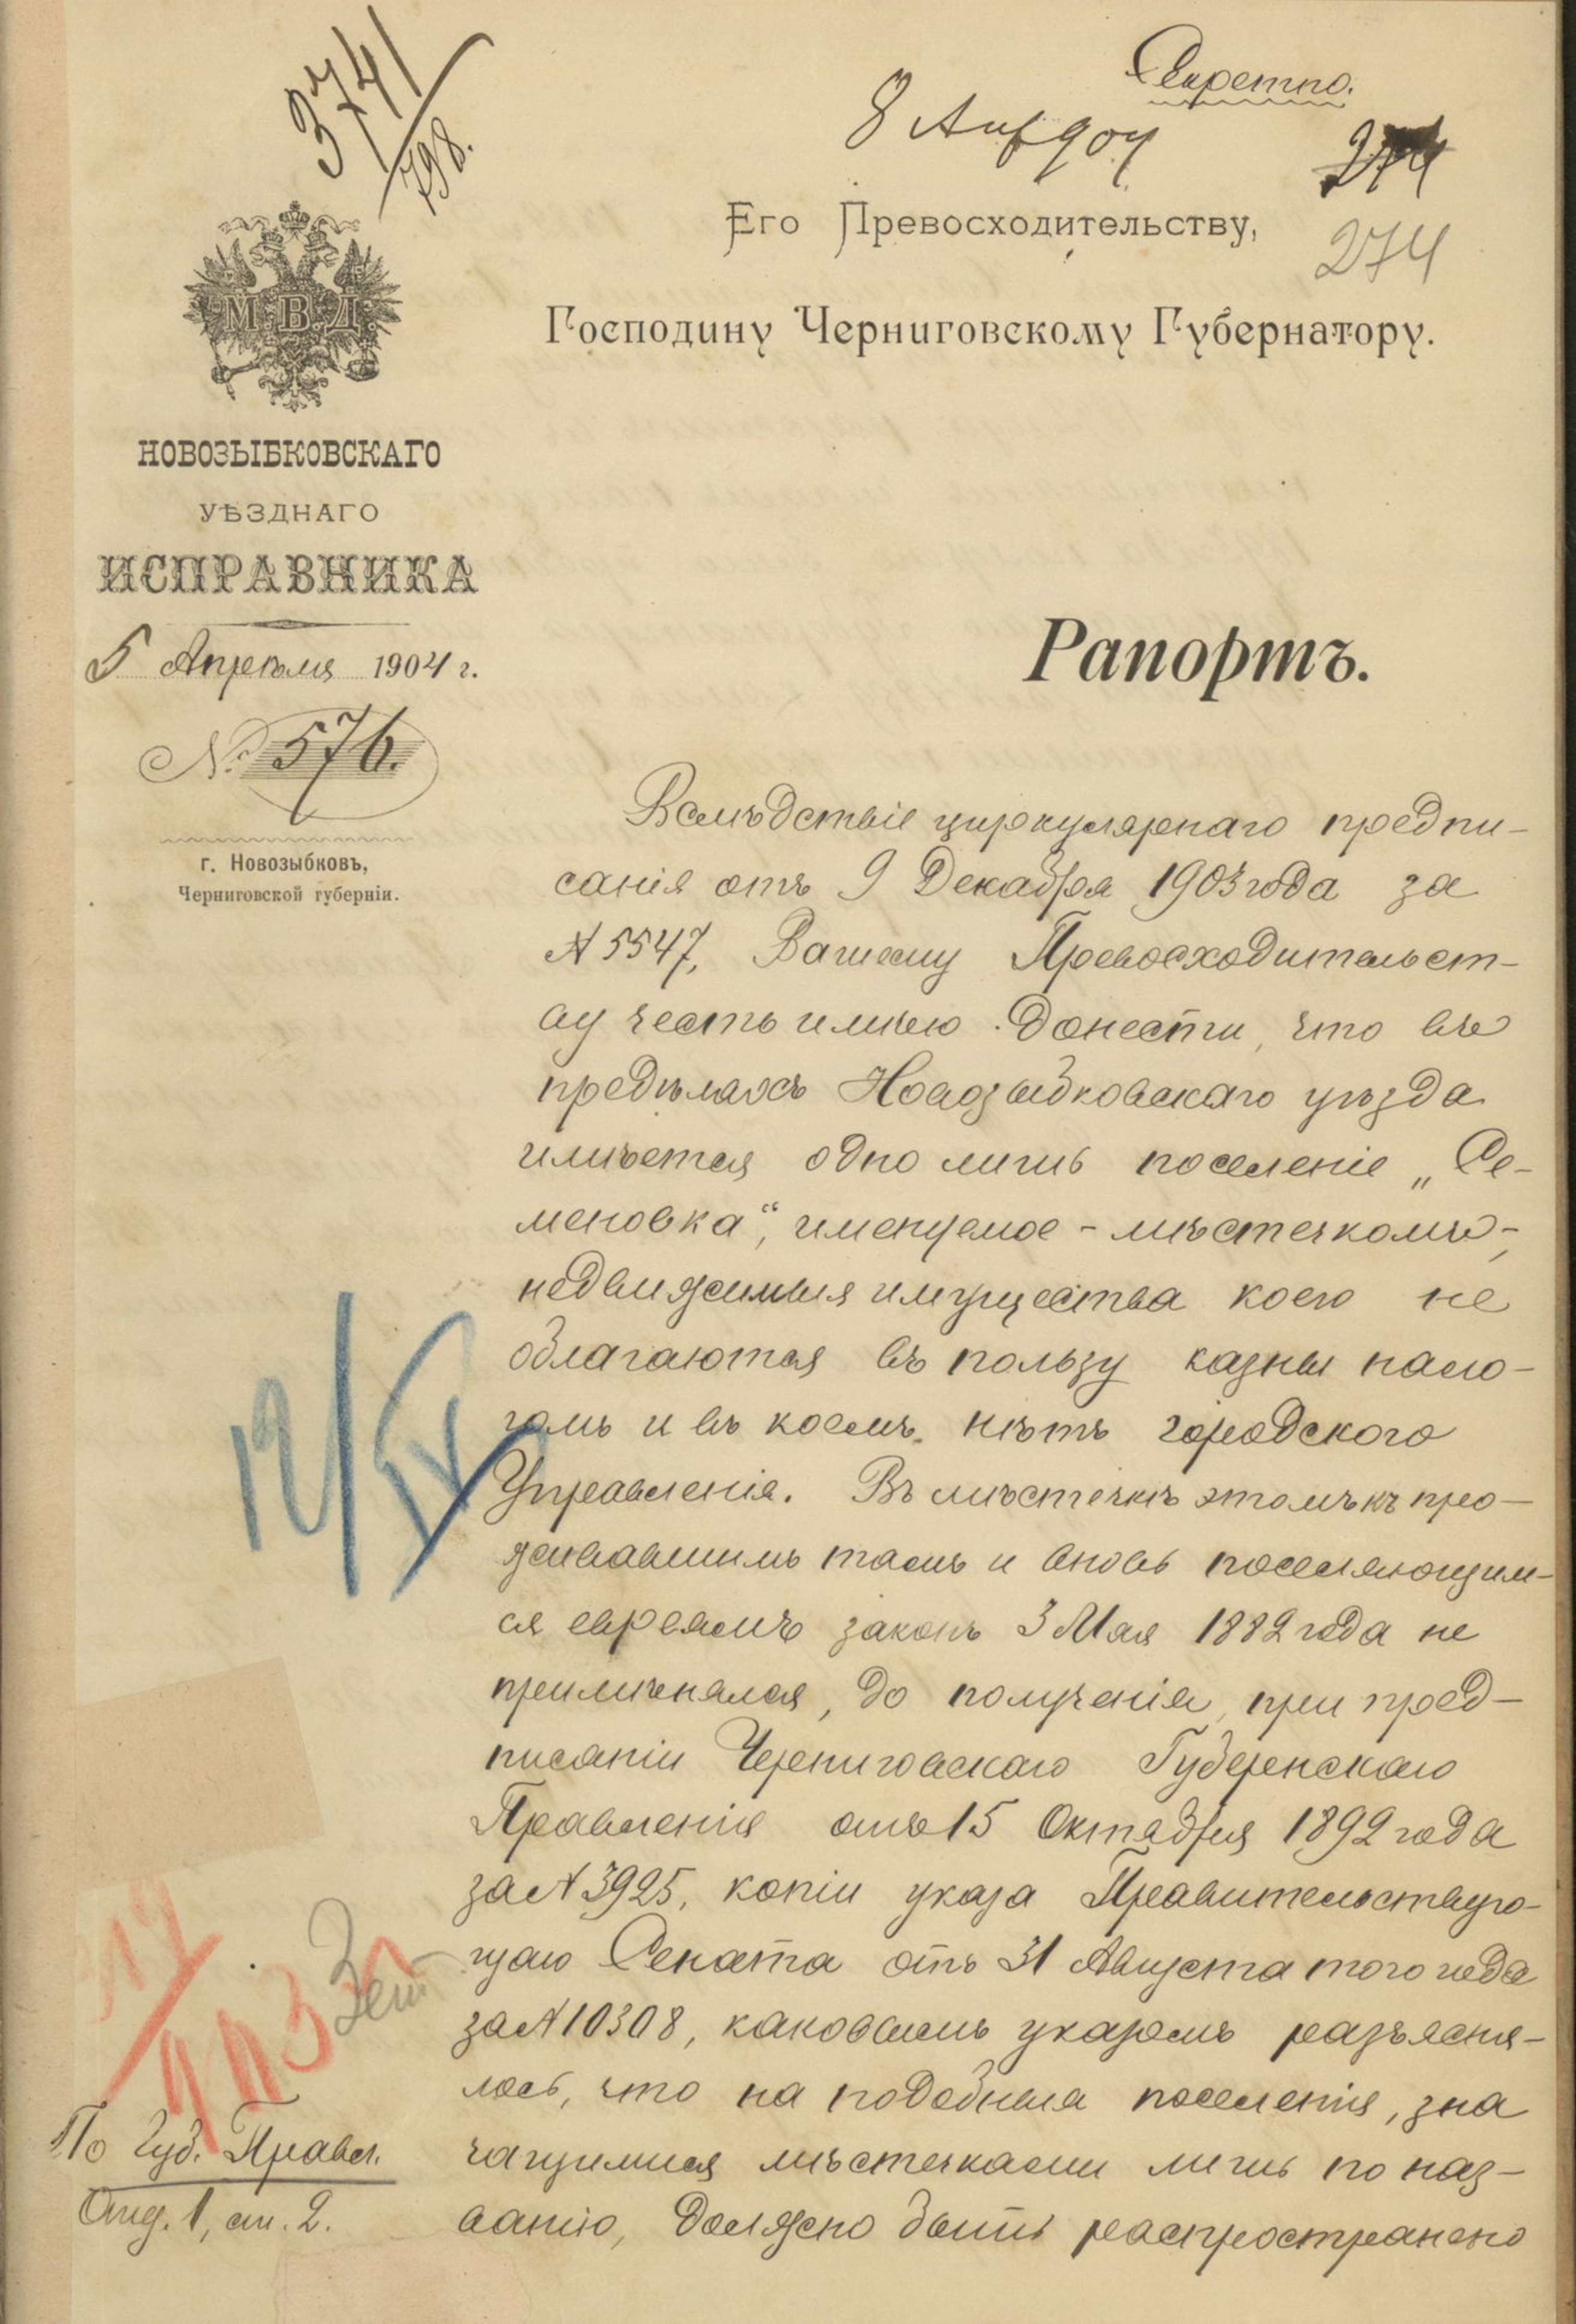 3741/798.
Секретно.
8 Апр 904
274
274
Его Превосходительству,
Господину Черниговскому Губернатору.
М.В.Д.
НОВОЗЫБКОВСКАГО
УѢЗДНАГО
ИСПРАВНИКА
5 Апрѣля 1904 г.
№ 576.
г. Новозыбковъ,
Черниговской губерніи.
Рапортъ.
Вслѣдствіе циркулярнаго предпи-
санія отъ 9 Декабря 1903 года за
№ 5547, Вашему Превосходительст-
ву честь имѣю донести, что въ
предѣлахъ Новозыбковскаго уѣзда
имѣется одно лишь поселеніе „Се-
меновка“, именуемое - мѣстечкомъ-,
недвижимыя имущества коего не
облагаются въ пользу казны нало-
гомъ и въ коемъ нѣтъ городского
Управленія. Въ мѣстечкѣ этомъ къ про-
живавшимъ тамъ и вновь поселяющим-
ся евреямъ законъ 3 Мая 1882 года не
примѣнялся, до полученія, при пред-
писаніи Черниговскаго Губернскаго
Правленія отъ 15 Октября 1892 года
за № 3925, копіи указа Правительствую-
щаго Сената отъ 31 Августа того года
за № 10308, каковымъ указомъ разъясня-
лось, что на подобныя поселенія, зна
чащимися мѣстечками лишь по наз-
ванію, должно быть распространено
12/IV
По Губ. Правл.
Отд. 1, ст. 2.